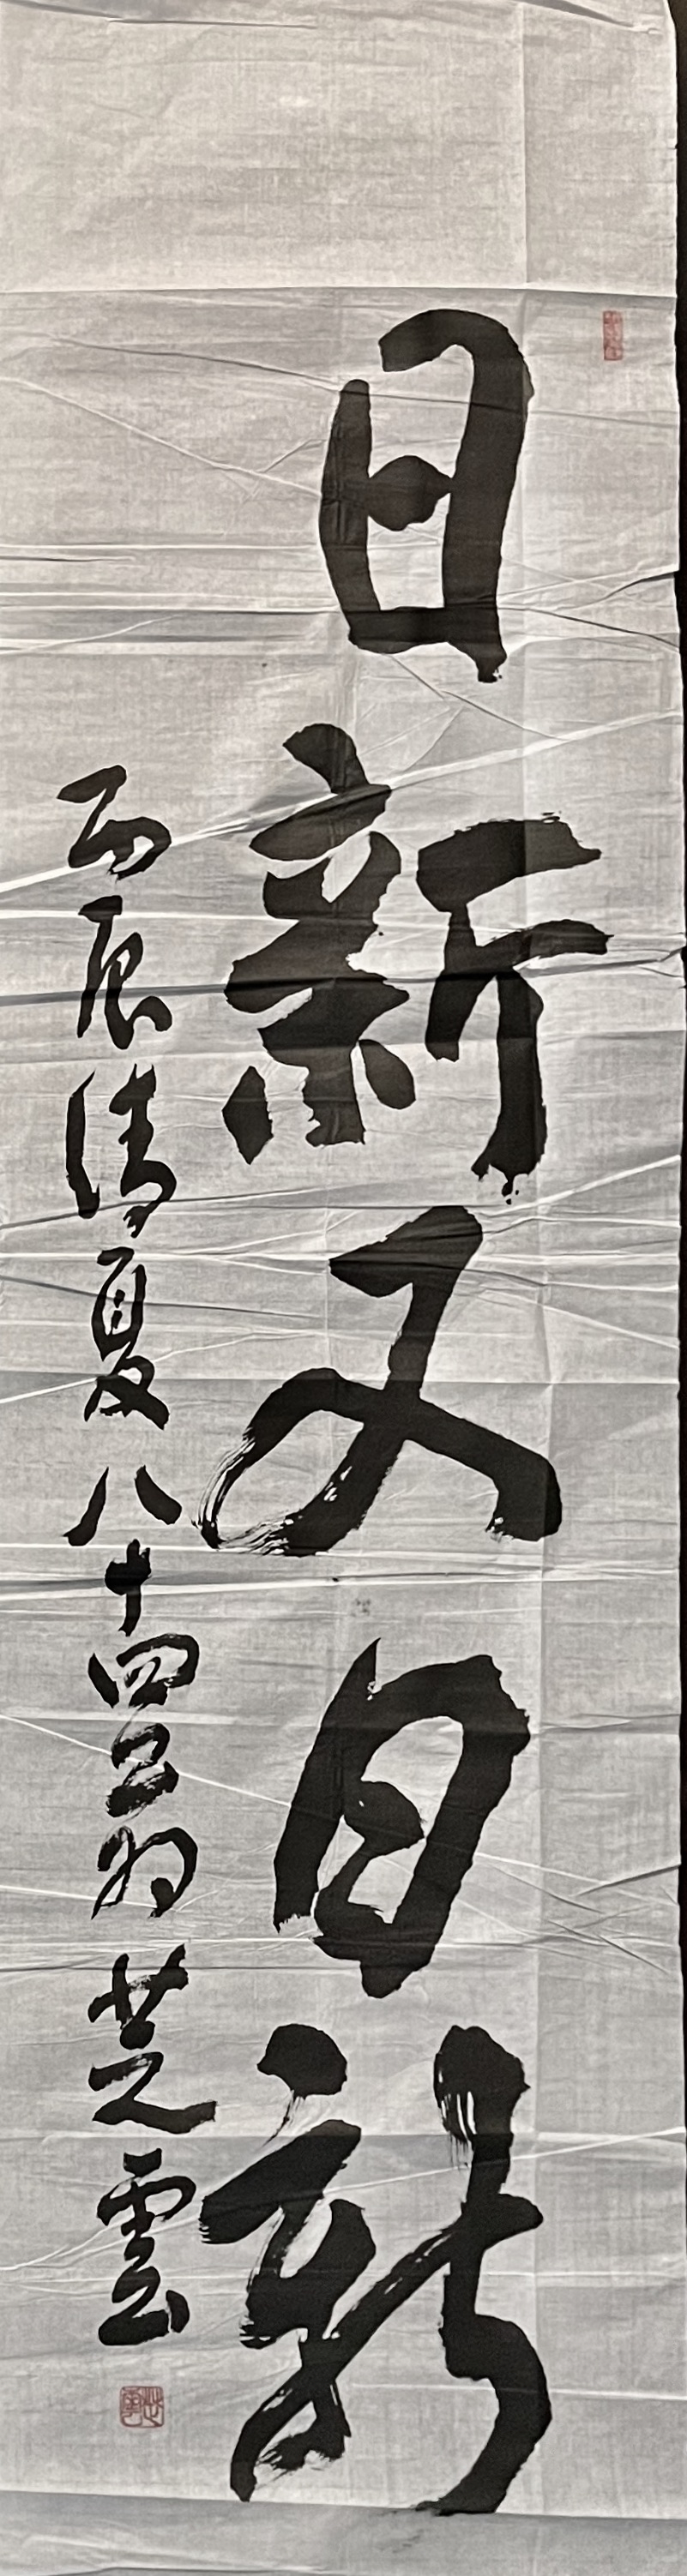 日新又日新
丙辰清夏八十四叟芝雲